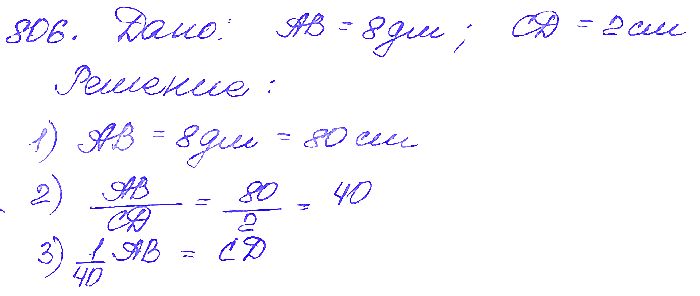 806. Дано: AB = 8дм; CD = 2см
Решение:
1) AB = 8дм = 80см
2) AB/CD = 80/2 = 40
3) 1/40 AB = CD